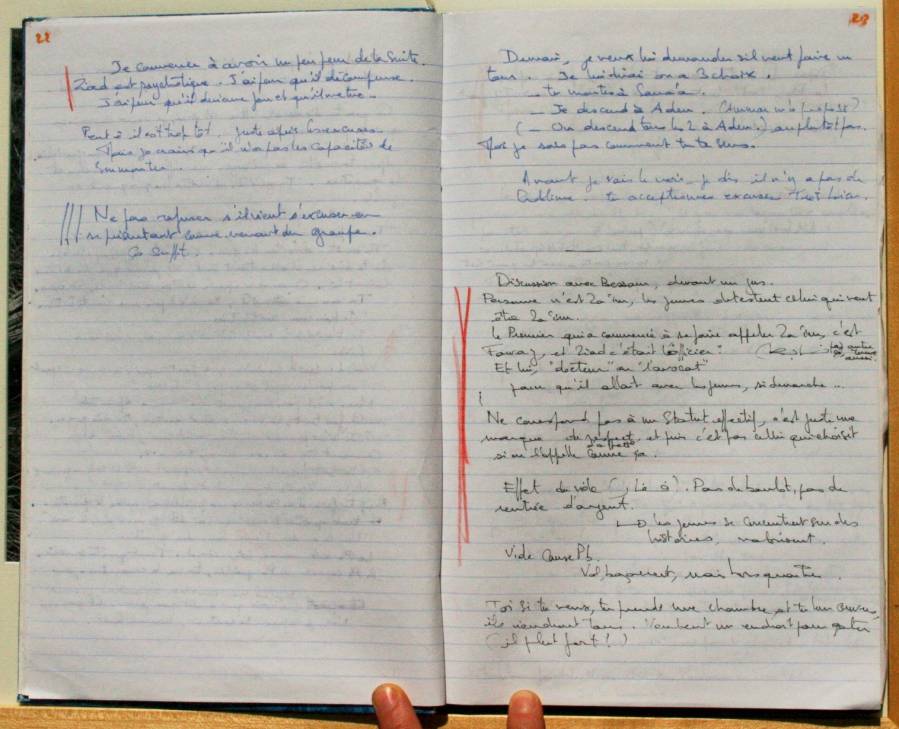 22
Je commence à avoir un peu peur de la suite.
Ziad est psychotique. J'ai peur qu'il décompense.
J'ai peur qu'il devienne fou et qu'il me tue.
Peut-être il est trop tôt. Juste après les excuses.
Mais je crains qu'il n'a pas les capacités de
surmonter.
Ne pas refuser s'il vient s'excuser en
se présentant comme venant du groupe.
Ça suffit.
23
Demain, je veux lui demander s'il veut faire un
tour. Je lui dirai on a 3 choix.
- tu montes à Sana'a.
- Je descends à Aden. (Ammar m'a proposé)
(- On descend tous les 2 à Aden.)
Moi je sais pas comment tu te sens.
Avant je vais le voir, je dis il n'y a pas de
problème. tu acceptes mes excuses
Discussion avec Bassam, devant un jus.
Personne n'est Za'im, les jeunes détestent celui qui veut
être Za'im.
Le Premier qui a commencé à se faire appeler Za'im, c'est
Fawaz, et Ziad c'était "l'officier"
Et lui, "docteur" ou "l'avocat"
parce qu'il allait avec les jeunes, sa démarche ...
Ne correspond pas à un Statut effectif, c'est juste une
marque de respect, et puis c'est pas celui qui choisit
si on l'appelle comme ça.
Effet du vide. Pas de boulot, pas de
rentrée d'argent.
les jeunes se concentrent sur des
histoires,
Vide cause Pb.
Vol, mais hors quartier.
Toi si tu veux, tu prends une chambre et tu leur ouvres,
ils viendront tous. Veulent un endroit pour
(il pleut fort!)